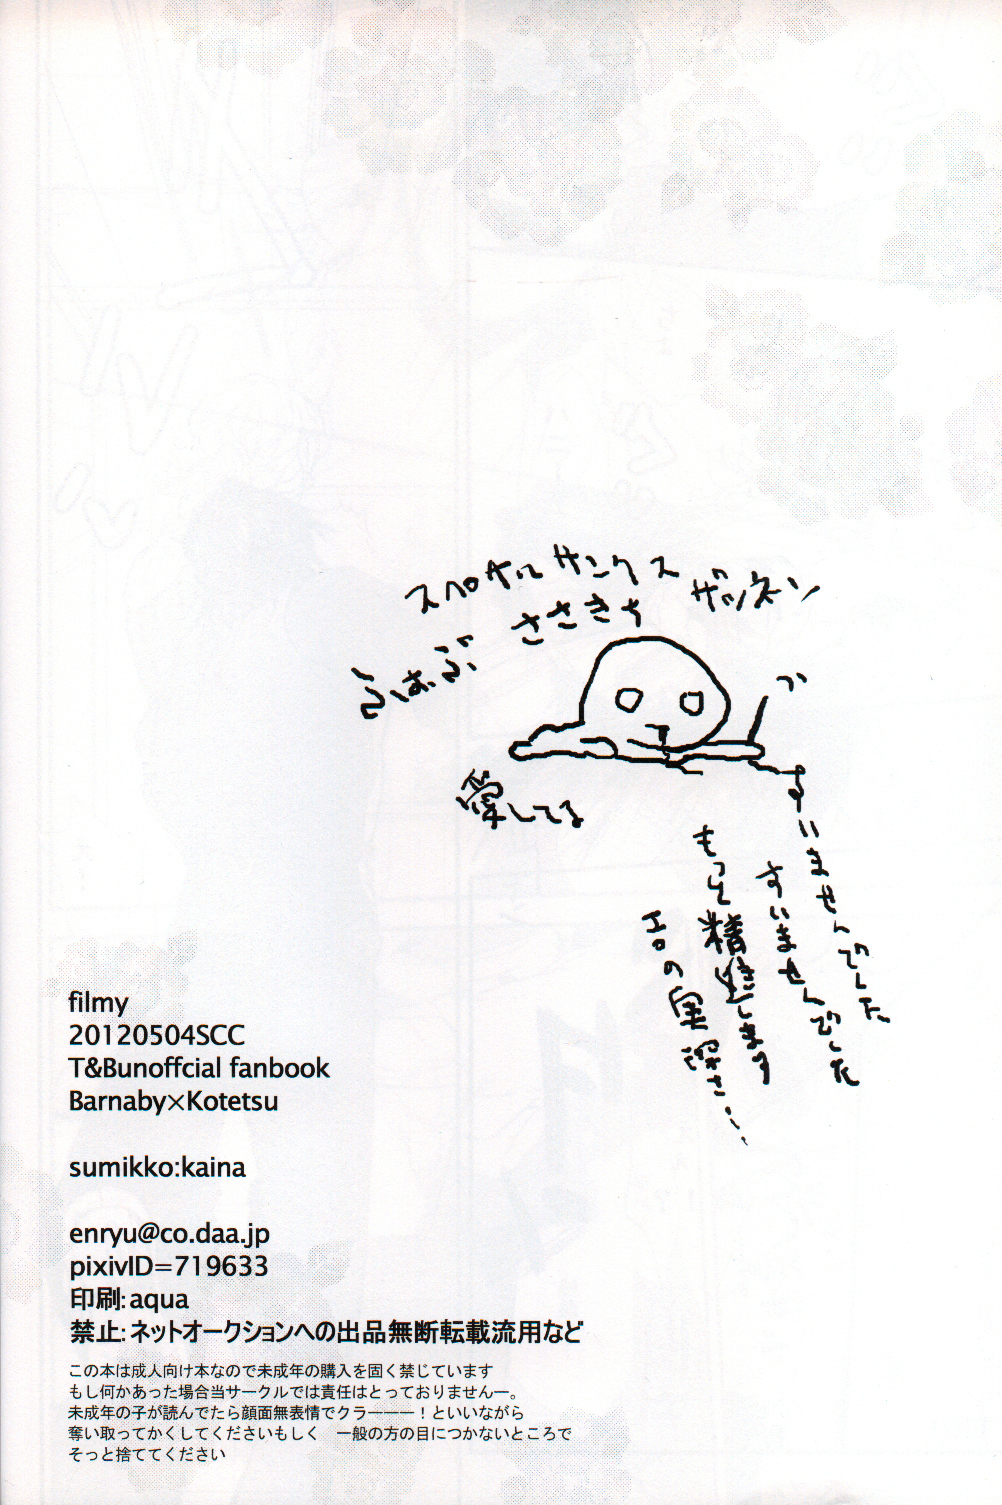 スペサルサンクス ザッネン
らぶ ささきち
愛してる
すいませんでした
すいませんでした
もっと精進します
エロの実深さ・・・
filmy
20120504SCC
T&Bunoffcial fanbook
Barnaby×Kotetsu
sumikko:kaina
enryu@co.daa.jp
pixivID=719633
印刷:aqua
禁止:ネットオークションへの出品無断転載流用など
この本は成人向け本なので未成年の購入を固く禁じています
もし何かあった場合当サークルでは責任はとっておりませんー。
未成年の子が読んでたら顔面無表情でクラーーー！といいながら
奪い取ってかくしてくださいもしく　一般の方の目につかないところで
そっと捨ててください